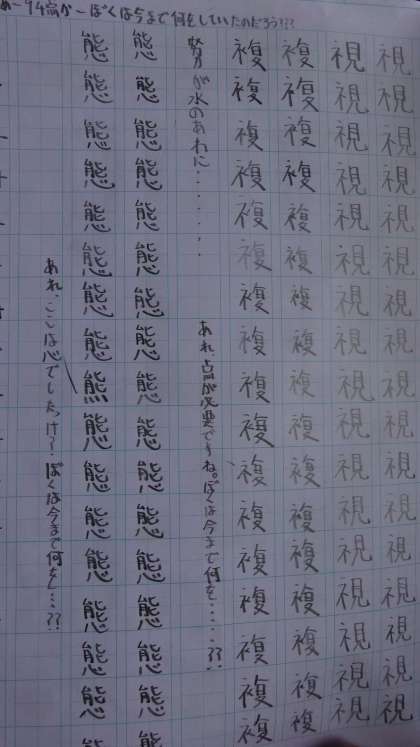 あー94点がーぼくは今まで何をしていたのだろう???
視視視視視視視視視視視視視視視視視
視視視視視視視視視視視視視視視視視
複複複複複複複複複複複複複複複複複
複複複複複複複複複複複複複複複複複
あれ、点が必要ですね。ぼくは今まで何を・・・・??
努力が水のあわに・・・・・・
態態態態態態態態態態態態態態態態態
態態態態態態態態熊態態態態態態態態
あれ、ここは心でしたっけ?ぼくは今まで何を…??